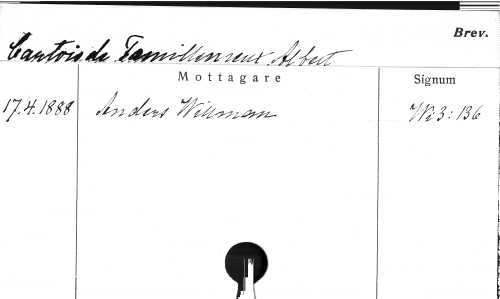 Brev.
Cantois de Familleureux, Albert
Mottagare Signum
17.4.1888 Anders Willman Wi3:136